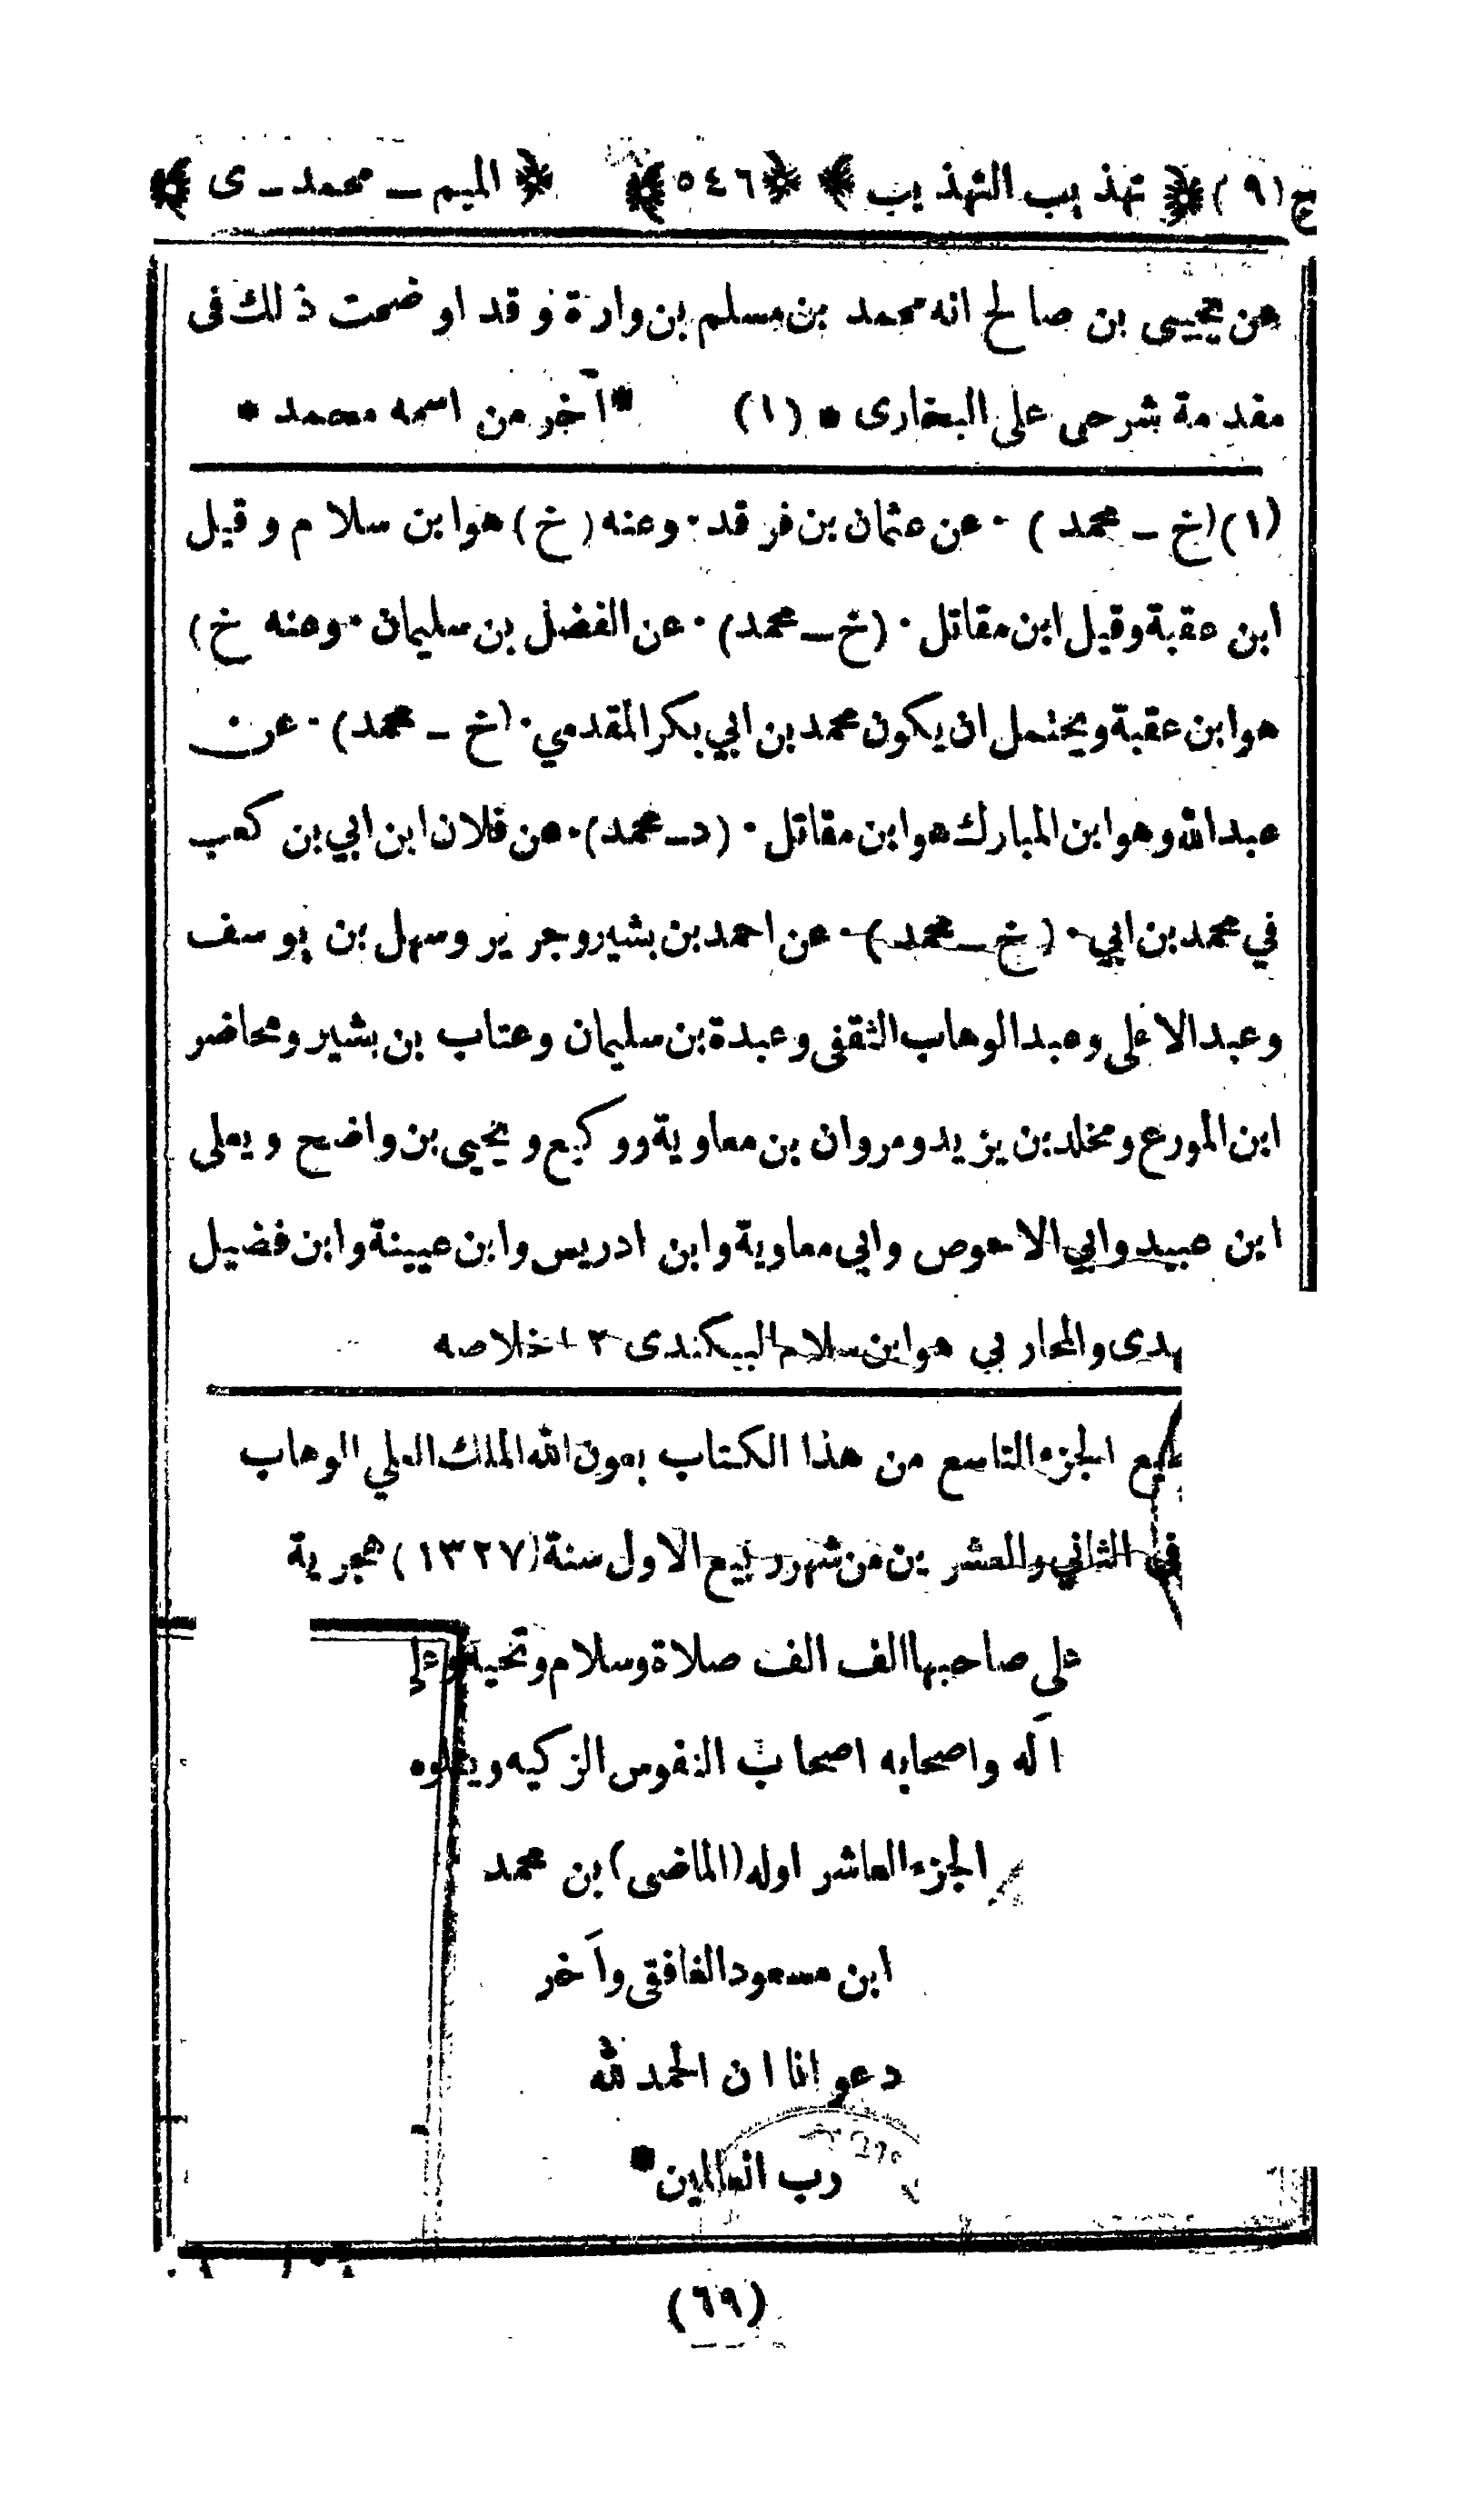 ج (٩) ﴿ تهذيب التهذيب ﴾ ﴿٥٤٦﴾ ﴿ الميم ــ محمد ــ ى ﴾
عن يحيى بن صالح انه محمد بن مسلم بن وارة وقد اوضحت ذلك فى
مقدمة شرحى على البخارى * (١) * آخر من اسمه محمد *
(١) (خ ــ محمد) ٠ عن عثمان بن فرقد ٠ وعنه (خ) هو ابن سلام وقيل
ابن عقبة وقيل ابن مقاتل ٠ (خ ــ محمد) ٠ عن الفضل بن سليمان ٠ وعنه خ)
هو ابن عقبة ويحتمل ان يكون محمد بن ابي بكر المقدمي ٠ (خ ــ محمد) ٠ عن
عبدالله وهو ابن المبارك هو ابن مقاتل ٠ (د ــ محمد) ٠ عن فلان ابن ابي بن كعب
في محمد بن ابي ٠ (خ ــ محمد) ٠ عن احمد بن بشير وجرير وسهل بن يوسف
وعبد الاعلى وعبد الوهاب الثقفى وعبدة بن سليمان وعتاب بن بشير ومحاضر
ابن المورع ومخلد بن يزيد ومروان بن معاوية ووكيع ويحيى بن واضح ويعلى
ابن عبيد وابي الاحوص وابي معاوية وابن ادريس وابن عيينة وابن فضيل
والمحاربي هو ابن سلام البيكندى ١٢ خلاصه
طبع الجزء التاسع من هذا الكتاب بعون الله الملك العلي الوهاب
في الثاني والعشرين من شهر ربيع الاول سنة (١٣٢٧) هجرية
على صاحبها الف الف صلاة وسلام وتحية وعلى
آله واصحابه اصحاب النفوس الزكيه ويتلوه
الجزء العاشر اوله (الماضى) بن محمد
ابن مسعود الغافقى وآخر
دعوانا ان الحمد لله
رب العالمين *
(٦٩)